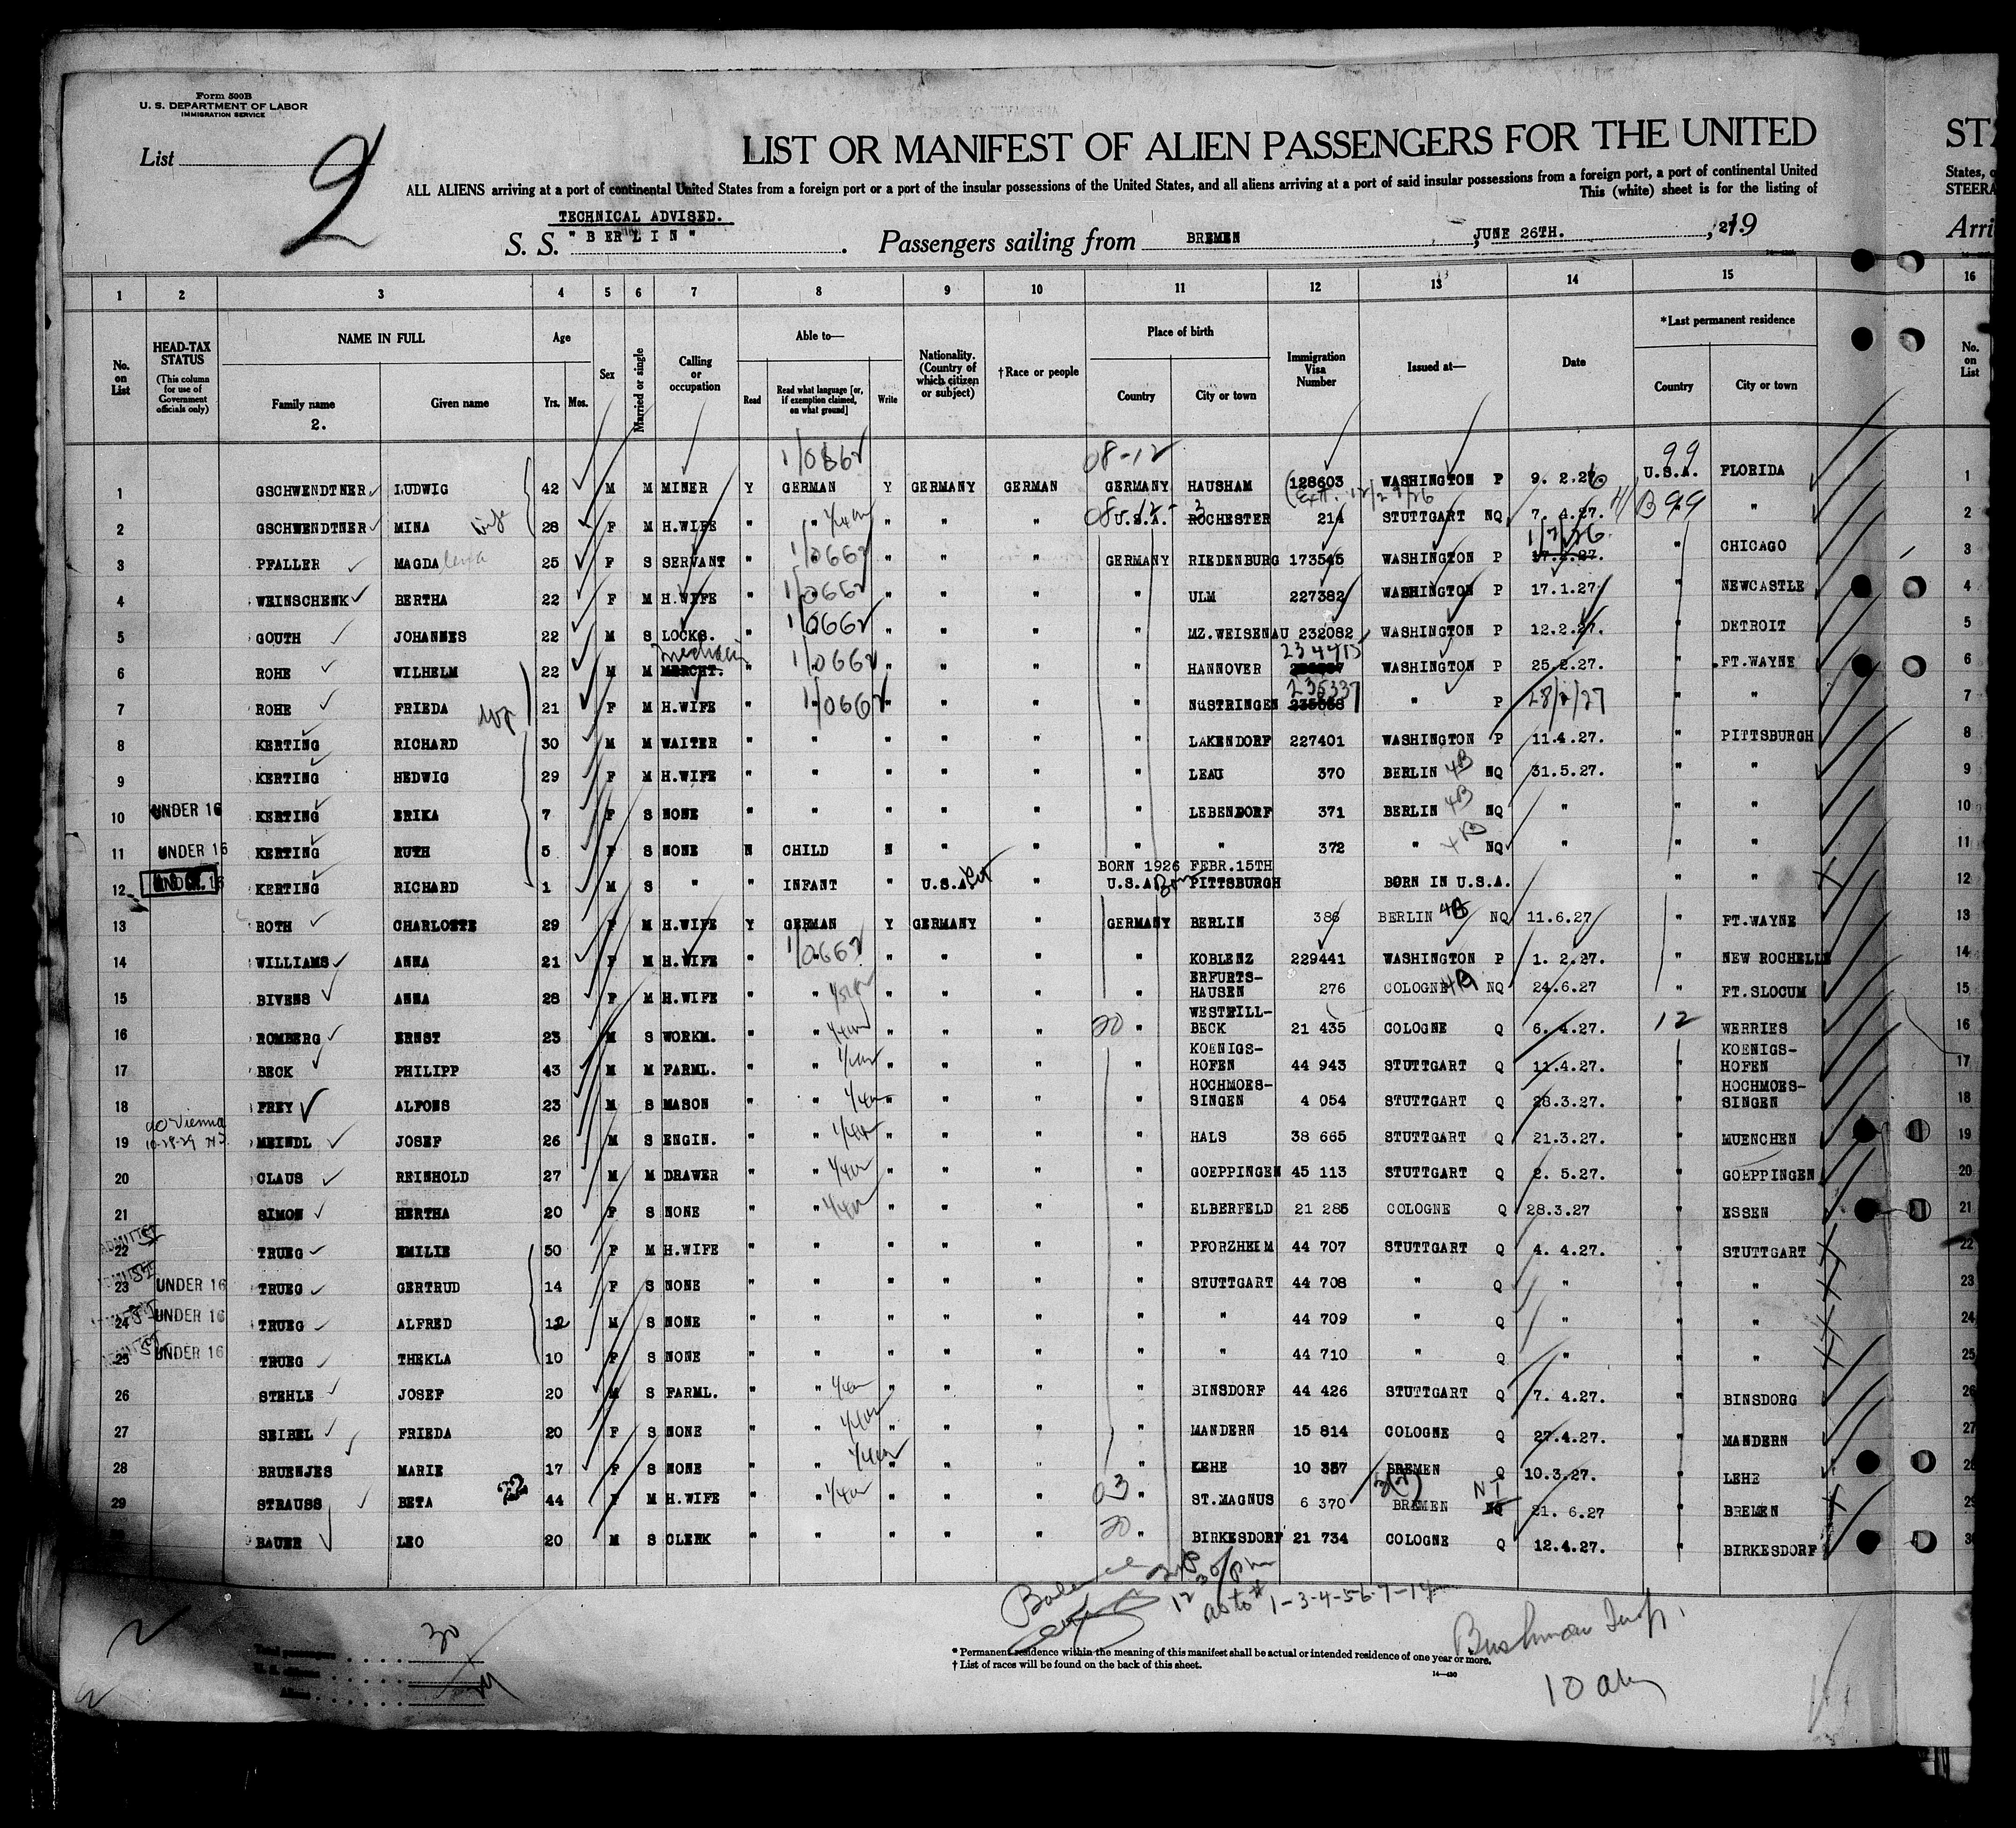 Form 500B
U. S. DEPARTMENT OF LABOR
IMMIGRATION SERVICE
List
2
LIST OR MANIFEST OF ALIEN PASSENGERS FOR THE UNITED
STA
ALL ALIENS arriving at a port of continental United States from a foreign port or a port of the insular possessions of the United States, and all aliens arriving at a port of said insular possessions from a foreign port, a port of continental United
States, o
This (white) sheet is for the listing of
STEERA
TECHNICAL ADVISED.
S. S. "BERLIN" . Passengers sailing from BREMEN , JUNE 26TH. , 19 27
Arri
1 2 3 4 5 6 7 8 9 10 11 12 13 14 15 16
No. on List
HEAD-TAX STATUS (This column for use of Government officials only)
NAME IN FULL
Family name
2.
Given name
Age
Yrs. Mos.
Sex
Married or single
Calling or occupation
Able to—
Read
Read what language [or, if exemption claimed, on what ground]
Write
Nationality. (Country of which citizen or subject)
† Race or people
Place of birth
Country
City or town
Immigration Visa Number
Issued at—
Date
*Last permanent residence
Country
City or town
No. on List
1/0662 08-12 99
1 GSCHWENDTNER LUDWIG 42 M M MINER Y GERMAN Y GERMANY GERMAN GERMANY HAUSHAM 128603 WASHINGTON P 9. 2.26 U.S.A. FLORIDA 1
Ext. 12/29/26
2 GSCHWENDTNER MINA wife 28 F M H.WIFE " " " " " U.S.A. ROCHESTER 214 STUTTGART NQ 7. 4.27. B99 " 2
3 PFALLER MAGDALENA 25 F S SERVANT " 1/0662 " " " GERMANY RIEDENBURG 173545 WASHINGTON P 17.2.27. 1/7/26. " CHICAGO 3
4 WEINSCHENK BERTHA 22 F M H.WIFE " 1/0662 " " " " ULM 227382 WASHINGTON P 17.1.27 " NEWCASTLE 4
5 GOUTH JOHANNES 22 M S LOCKS. " 1/0662 " " " " MZ.WEISENAU 232082 WASHINGTON P 12.2.27. " DETROIT 5
6 ROHE WILHELM 22 M M MERCHT. " 1/0662 " " " " HANNOVER 234415 WASHINGTON P 25.2.27. " FT.WAYNE 6
7 ROHE FRIEDA 21 F M H.WIFE " 1/0662 " " " " NüSTRINGEN 235337 " P 28/2/27 " " 7
8 KERTING RICHARD 30 M M WAITER " " " " " " LAKENDORF 227401 WASHINGTON P 11.4.27. " PITTSBURGH 8
9 KERTING HEDWIG 29 F M H.WIFE " " " " " " LEAU 370 BERLIN 4B NQ 31.5.27. " " 9
10 UNDER 16 KERTING ERIKA 7 F S NONE " " " " " " LEBENDORF 371 BERLIN 4B NQ " " " 10
11 UNDER 16 KERTING RUTH 5 F S NONE N CHILD N " " " " 372 " 4B NQ " " " 11
BORN 1926 FEBR.15TH
12 UNDER 16 KERTING RICHARD 1 M S " " INFANT " U.S.A. " U.S.A. PITTSBURGH BORN IN U.S.A. " " 12
13 ROTH CHARLOTTE 29 F M H.WIFE Y GERMAN Y GERMANY " GERMANY BERLIN 386 BERLIN 4B NQ 11.6.27 " FT.WAYNE 13
14 WILLIAMS ANNA 21 F M H.WIFE " 1/0662 " " " " KOBLENZ 229441 WASHINGTON P 1. 2.27. " NEW ROCHELLE 14
15 BIVENS ANNA 28 F M H.WIFE " " " " " " ERFURTS-HAUSEN 276 COLOGNE 4B NQ 24.6.27 " FT.SLOCUM 15
16 ROMBERG ERNST 23 M S WORKM. " " " " " 20 " WESTRILL-BECK 21 435 COLOGNE Q 6. 4.27. 12 WERRIES 16
17 BECK PHILIPP 43 M M FARML. " " " " " " KOENIGS-HOFEN 44 943 STUTTGART Q 11.4.27. " KOENIGS-HOFEN 17
18 FREY ALFONS 23 M S MASON " " " " " " HOCHMOES-SINGEN 4 054 STUTTGART Q 28.3.27. " HOCHMOES-SINGEN 18
Vienna
19 10-28-29 MEINDL JOSEF 26 M S ENGIN. " " " " " " HALS 38 665 STUTTGART Q 21.3.27. " MUENCHEN 19
20 CLAUS REINHOLD 27 M M DRAWER " " " " " " GOEPPINGEN 45 113 STUTTGART Q 2. 5.27. " GOEPPINGEN 20
21 SIMON HERTHA 20 F S NONE " " " " " " ELBERFELD 21 286 COLOGNE Q 28.3.27 " ESSEN 21
22 ADMITTED TRUEG EMILIE 50 F M H.WIFE " " " " " " PFORZHEIM 44 707 STUTTGART Q 4. 4.27. " STUTTGART 22
23 UNDER 16 TRUEG GERTRUD 14 F S NONE " " " " " " STUTTGART 44 708 " Q " " " 23
24 UNDER 16 TRUEG ALFRED 12 M S NONE " " " " " " " 44 709 " Q " " " 24
25 UNDER 16 TRUEG THEKLA 10 F S NONE " " " " " " " 44 710 " Q " " " 25
26 STEHLE JOSEF 20 M S FARML. " " " " " " BINSDORF 44 426 STUTTGART Q 7. 4.27. " BINSDORG 26
27 SEIBEL FRIEDA 20 F S NONE " " " " " " MANDERN 15 814 COLOGNE Q 27.4.27. " MANDERN 27
28 BRUENJES MARIE 17 F S NONE " " " " " " LEHE 10 357 BREMEN Q 10.3.27. " LEHE 28
29 STRAUSS BETA 22 44 F M H.WIFE " " " " " 03 " ST.MAGNUS 6 370 BREMEN NT 21. 6.27 " BREMEN 29
BAUER LEO 20 M S CLERK " " " " " 20 " BIRKESDORF 21 734 COLOGNE Q 12.4.27. " BIRKESDORF 30
as to # 1-3-4-5-6-7-14
Total passengers . . . . 30
U. S. citizens . . . .
Aliens . . . .
* Permanent residence within the meaning of this manifest shall be actual or intended residence of one year or more.
† List of races will be found on the back of this sheet.
14—430
Bushman Insp.
10 am